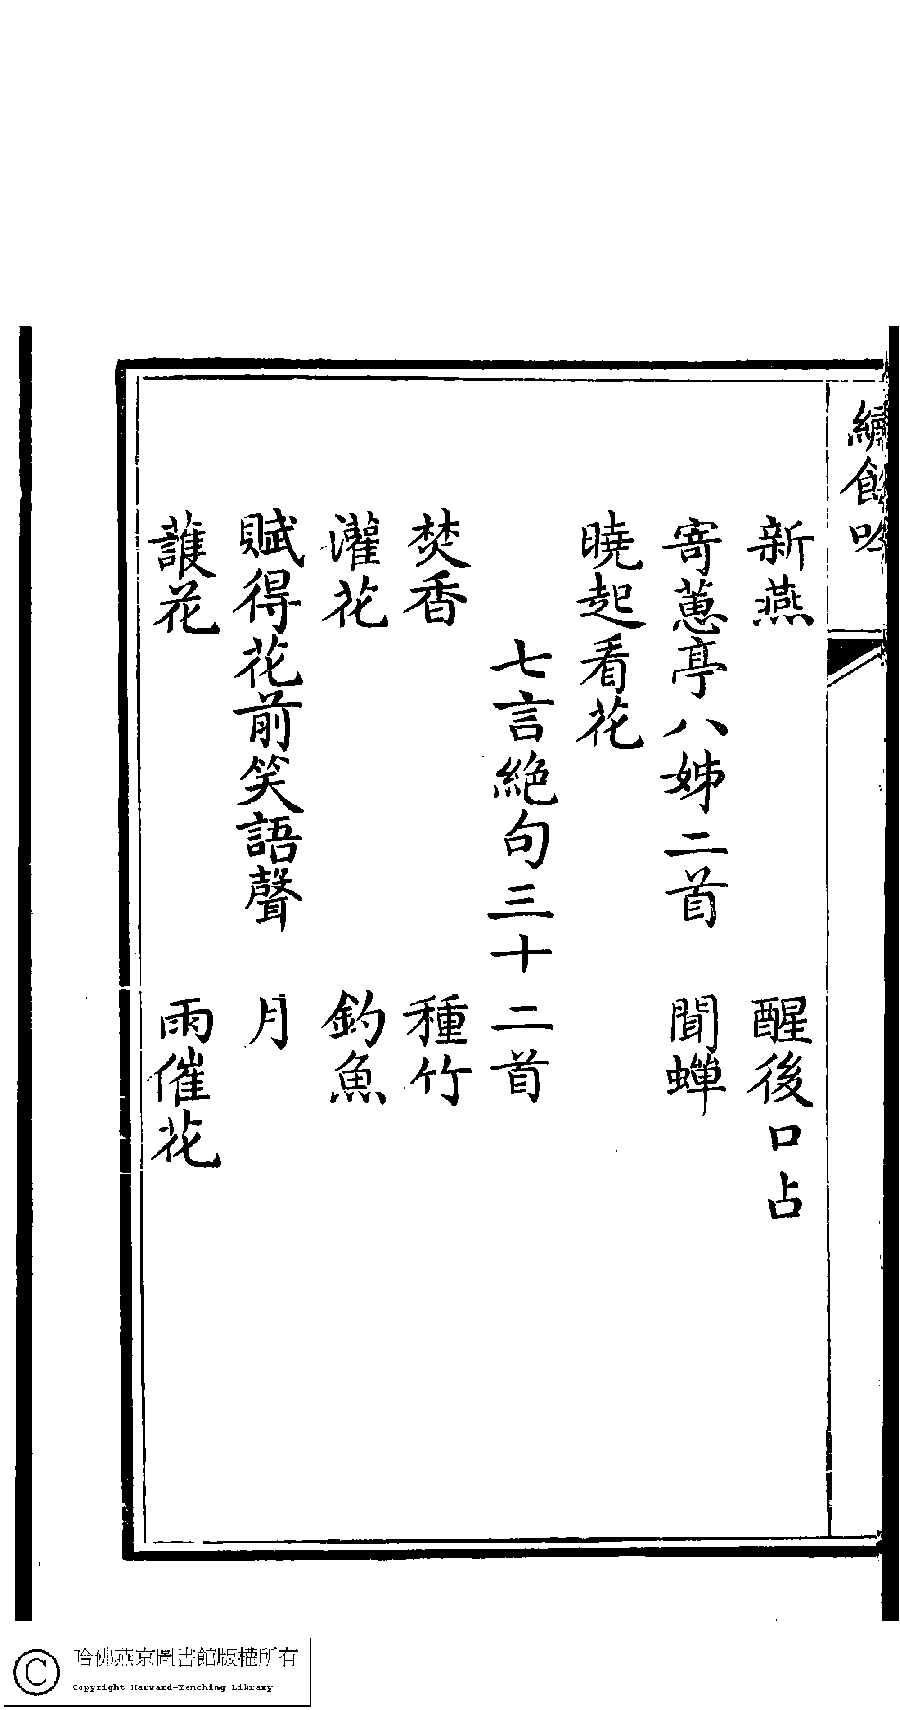 續飽吟
新燕　醒後口占
寄蕙亭八姊二首　聞蟬
曉起看花
七言絶句三十二首
焚香　種竹
灌花　釣魚
賦得花前笑語聲　月
護花　雨催花
哈佛燕京圖書館版權所有
Copyright Harvard-Yenching Library